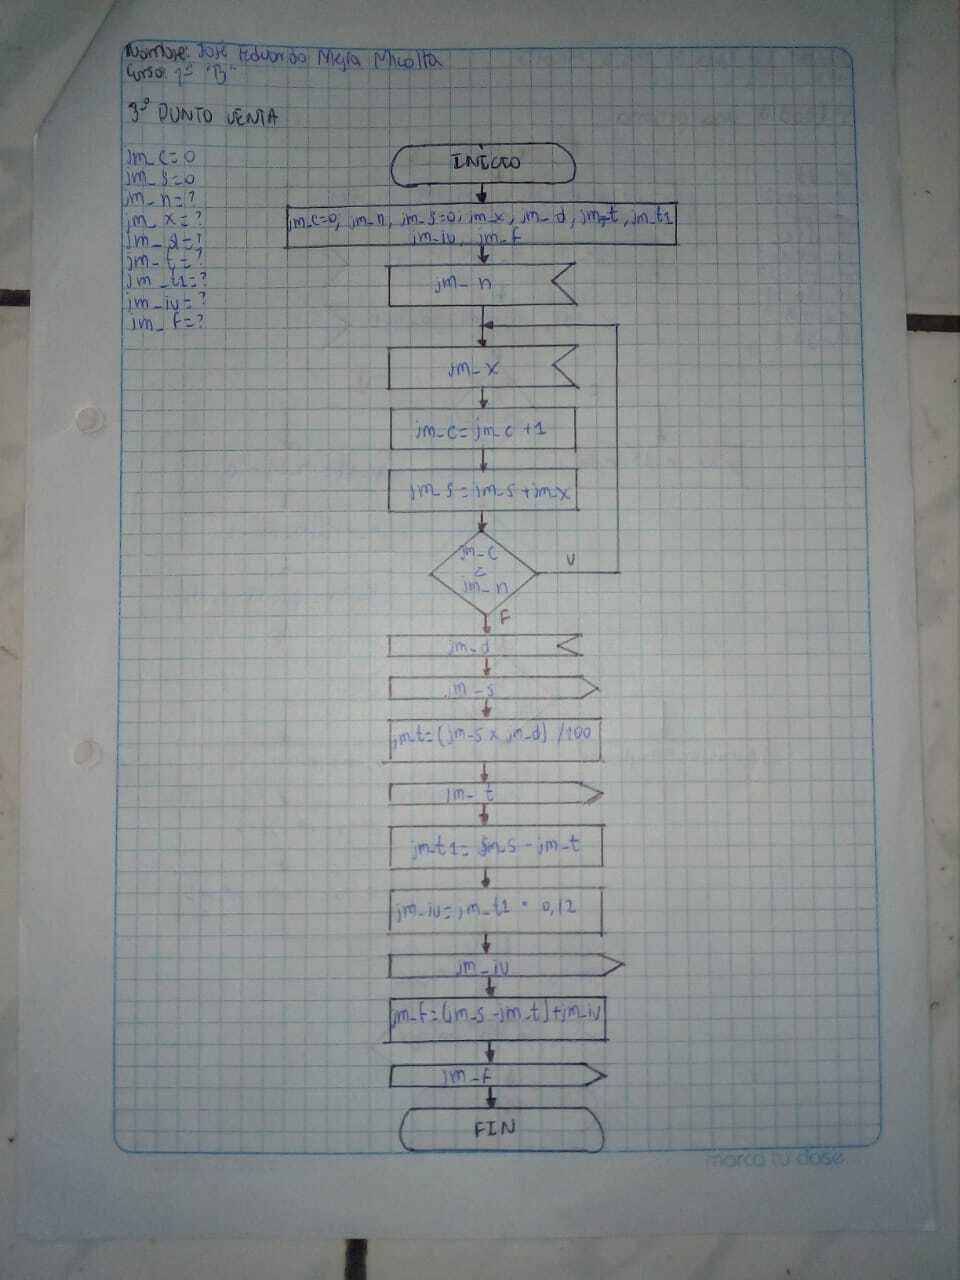 Nombre: José Eduardo Mejia Micolta
Curso: 1º "B"
3º PUNTO VENTA
jm_c=0
jm_s=0
jm_n=?
jm_x=?
jm_d=?
jm_t=?
jm_t1=?
jm_iv=?
jm_f=?
INICIO
jm_c=0, jm_n, jm_s=0, jm_x, jm_d, jm_t, jm_t1
jm_iv, jm_f
jm_n
jm_x
jm_c=jm_c+1
jm_s=jm_s+jm_x
jm_c
<
jm_n
V
F
jm_d
jm_s
jm_t=(jm_s x jm_d) /100
jm_t
jm_t1=jm_s-jm_t
jm_iv=jm_t1 * 0,12
jm_iv
jm_f=(jm_s-jm_t)+jm_iv
jm_f
FIN
marca tu clase